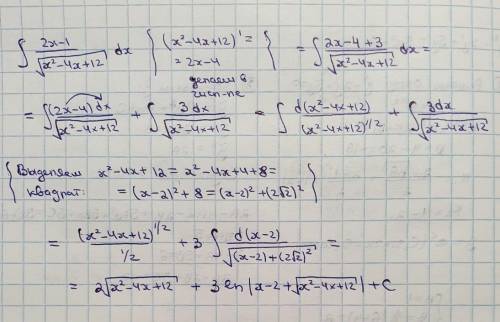 ∫ (2x-1)/√(x²-4x+12) dx { (x²-4x+12)' = = 2x-4 делаем в числ-ле } = ∫ (2x-4+3)/√(x²-4x+12) dx =
= ∫ (2x-4)dx/√(x²-4x+12) + ∫ 3dx/√(x²-4x+12) = ∫ d(x²-4x+12)/(x²-4x+12)^(1/2) + ∫ 3dx/√(x²-4x+12)
{ Выделяем x²-4x+12 = x²-4x+4+8 =
квадрат: = (x-2)²+8 = (x-2)²+(2√2)² }
= (x²-4x+12)^(1/2)/(1/2) + 3 ∫ d(x-2)/√((x-2)+(2√2)²) =
= 2√(x²-4x+12) + 3 ln|x-2+√(x²-4x+12)| + C